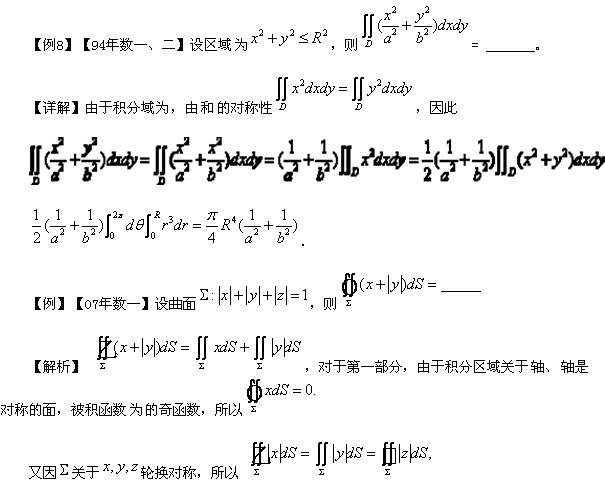 【例8】【94年数一、二】设区域为 $x^2+y^2 \leq R^2$，则 $\iint_D (\frac{x^2}{a^2}+\frac{y^2}{b^2})dxdy$ = ______。
【详解】由于积分域为，由和的对称性 $\iint_D x^2dxdy = \iint_D y^2dxdy$，因此
$\iint_D (\frac{x^2}{a^2}+\frac{y^2}{b^2})dxdy = \iint_D (\frac{x^2}{a^2}+\frac{x^2}{b^2})dxdy = (\frac{1}{a^2}+\frac{1}{b^2})\iint_D x^2dxdy = \frac{1}{2}(\frac{1}{a^2}+\frac{1}{b^2})\iint_D (x^2+y^2)dxdy$
$\frac{1}{2}(\frac{1}{a^2}+\frac{1}{b^2})\int_0^{2\pi} d\theta \int_0^R r^3dr = \frac{\pi}{4}R^4(\frac{1}{a^2}+\frac{1}{b^2})$.
【例】【07年数一】设曲面 $\Sigma:|x|+|y|+|z|=1$，则 $\oiint_\Sigma (x+|y|)dS =$ ______
【解析】 $\oiint_\Sigma (x+|y|)dS = \iint_\Sigma xdS + \iint_\Sigma |y|dS$，对于第一部分，由于积分区域关于轴、轴是
对称的面，被积函数为的奇函数，所以 $\oiint_\Sigma xdS = 0.$
又因 $\Sigma$ 关于 $x,y,z$ 轮换对称，所以 $\oiint_\Sigma |x|dS = \iint_\Sigma |y|dS = \oiint_\Sigma |z|dS,$